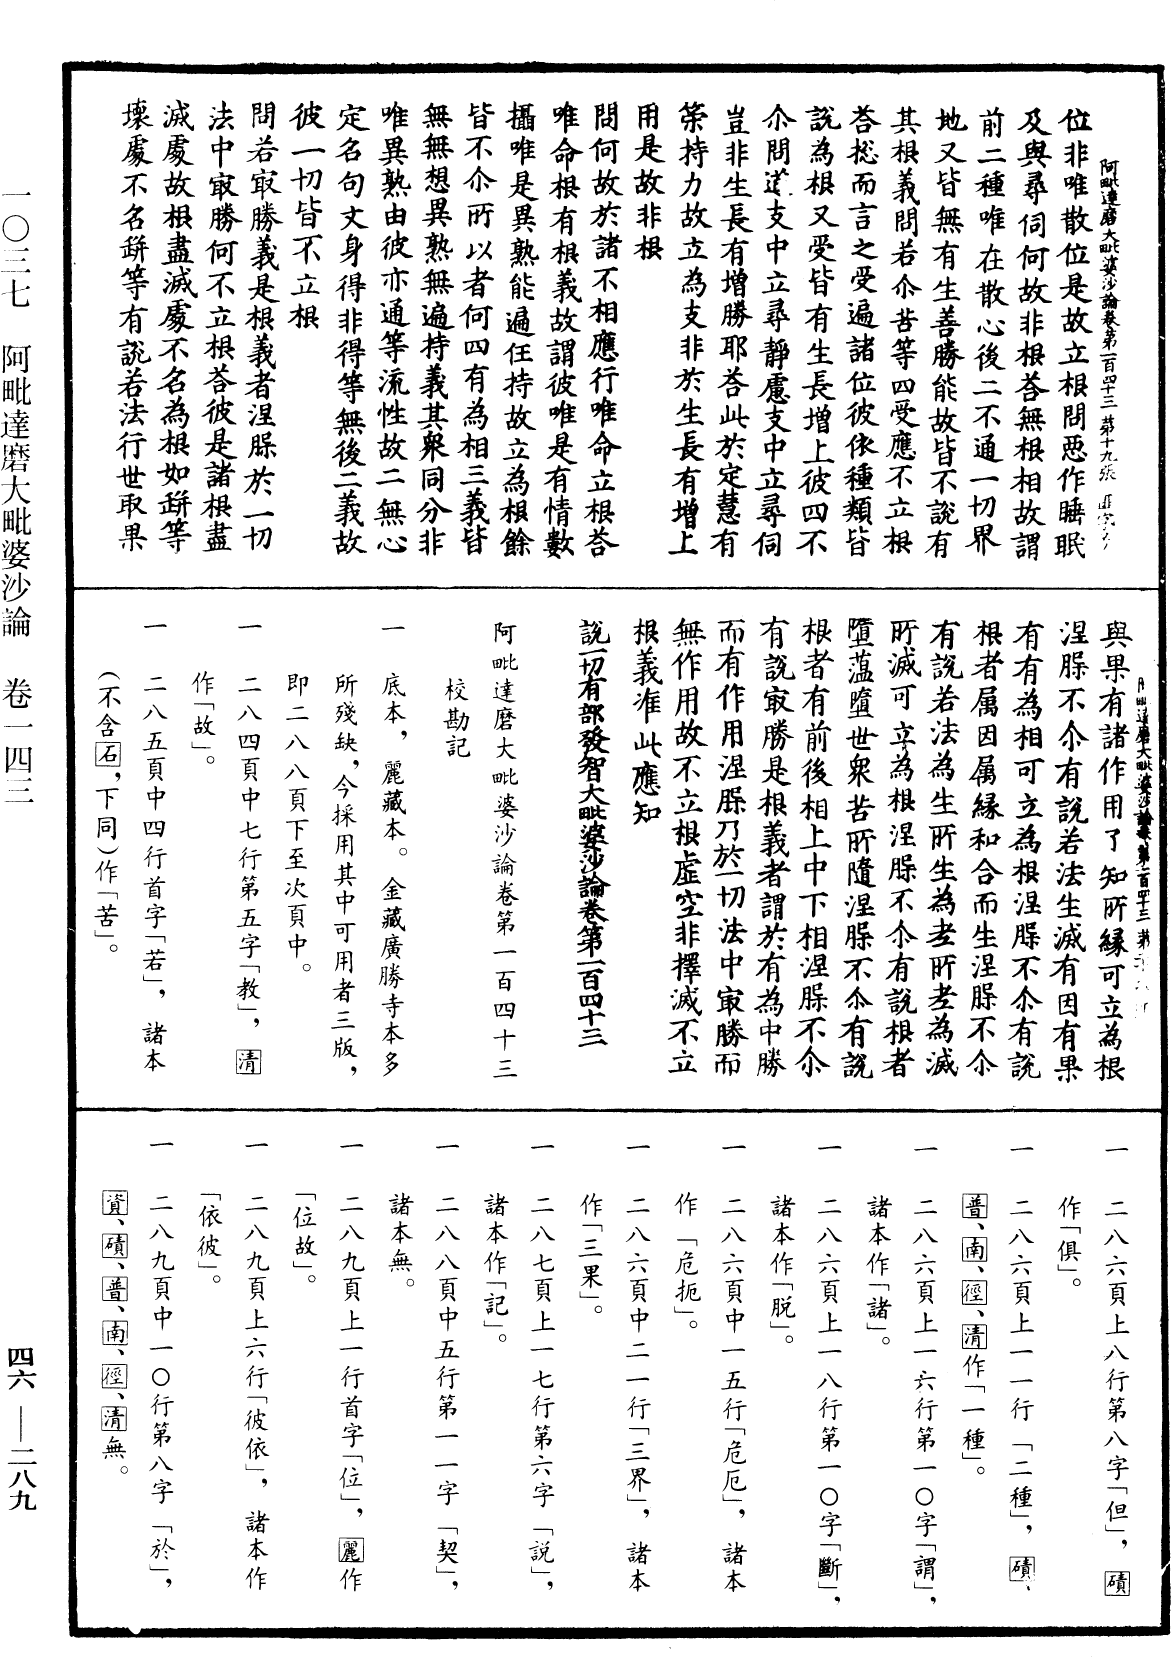 阿毗達磨大毗婆沙論卷第一百四十三 第十九張
位非唯散位是故立根問惡作睡眠
及與尋伺何故非根荅無根相故謂
前二種唯在散心後二不通一切界
地又皆無有生善勝能故皆不說有
其根義問若尒苦等四受應不立根
荅揔而言之受遍諸位彼依種類皆
說為根又受皆有生長增上彼四不
尒問道支中立尋靜慮支中立尋伺
豈非生長有增勝耶荅此於定慧有
筞持力故立為支非於生長有增上
用是故非根
問何故於諸不相應行唯命立根荅
唯命根有根義故謂彼唯是有情數
攝唯是異熟能遍任持故立為根餘
皆不尒所以者何四有為相三義皆
無無想異熟無遍持義其衆同分非
唯異熟由彼亦通等流性故二無心
定名句文身得非得等無後二義故
彼一切皆不立根
問若寂勝義是根義者涅槃於一切
法中寂勝何不立根荅彼是諸根盡
滅處故根盡滅處不名為根如缾等
壞處不名缾等有說若法行世取果
阿毗達磨大毗婆沙論卷第一百四十三
與果有諸作用了知所緣可立為根
涅槃不尒有說若法生滅有因有果
有有為相可立為根涅槃不尒有說
根者属因属緣和合而生涅槃不尒
有說若法為生所生為老所老為滅
所滅可立為根涅槃不尒有說根者
墮蘊墮世衆苦所隨涅槃不尒有說
根者有前後相上中下相涅槃不尒
有說寂勝是根義者謂於有為中勝
而有作用涅槃乃於一切法中寂勝而
無作用故不立根虛空非擇滅不立
根義准此應知
說一切有部發智大毗婆沙論卷第一百四十三
阿毗達磨大毗婆沙論卷第一百四十三
校勘記
一 底本，麗藏本。金藏廣勝寺本多
所殘缺，今採用其中可用者三版，
即二八八頁下至次頁中。
一 二八四頁中七行第五字「教」，清
作「故」。
一 二八五頁中四行首字「若」，諸本
（不含石，下同）作「苦」。
一 二八六頁上八行第八字「但」，磧
作「俱」。
一 二八六頁上一一行「二種」，磧、
普、南、徑、清作「一種」。
一 二八六頁上一六行第一〇字「謂」，
諸本作「諸」。
一 二八六頁上一八行第一〇字「斷」，
諸本作「脫」。
一 二八六頁中一五行「危厄」，諸本
作「危扼」。
一 二八六頁中二一行「三界」，諸本
作「三果」。
一 二八七頁上一七行第六字「說」，
諸本作「記」。
一 二八八頁中五行第一一字「契」，
諸本無。
一 二八九頁上一行首字「位」，麗作
「位故」。
一 二八九頁上六行「彼依」，諸本作
「依彼」。
一 二八九頁中一〇行第八字「於」，
資、磧、普、南、徑、清無。
一〇三七 阿毗達磨大毗婆沙論 卷一四三
四六——二八九